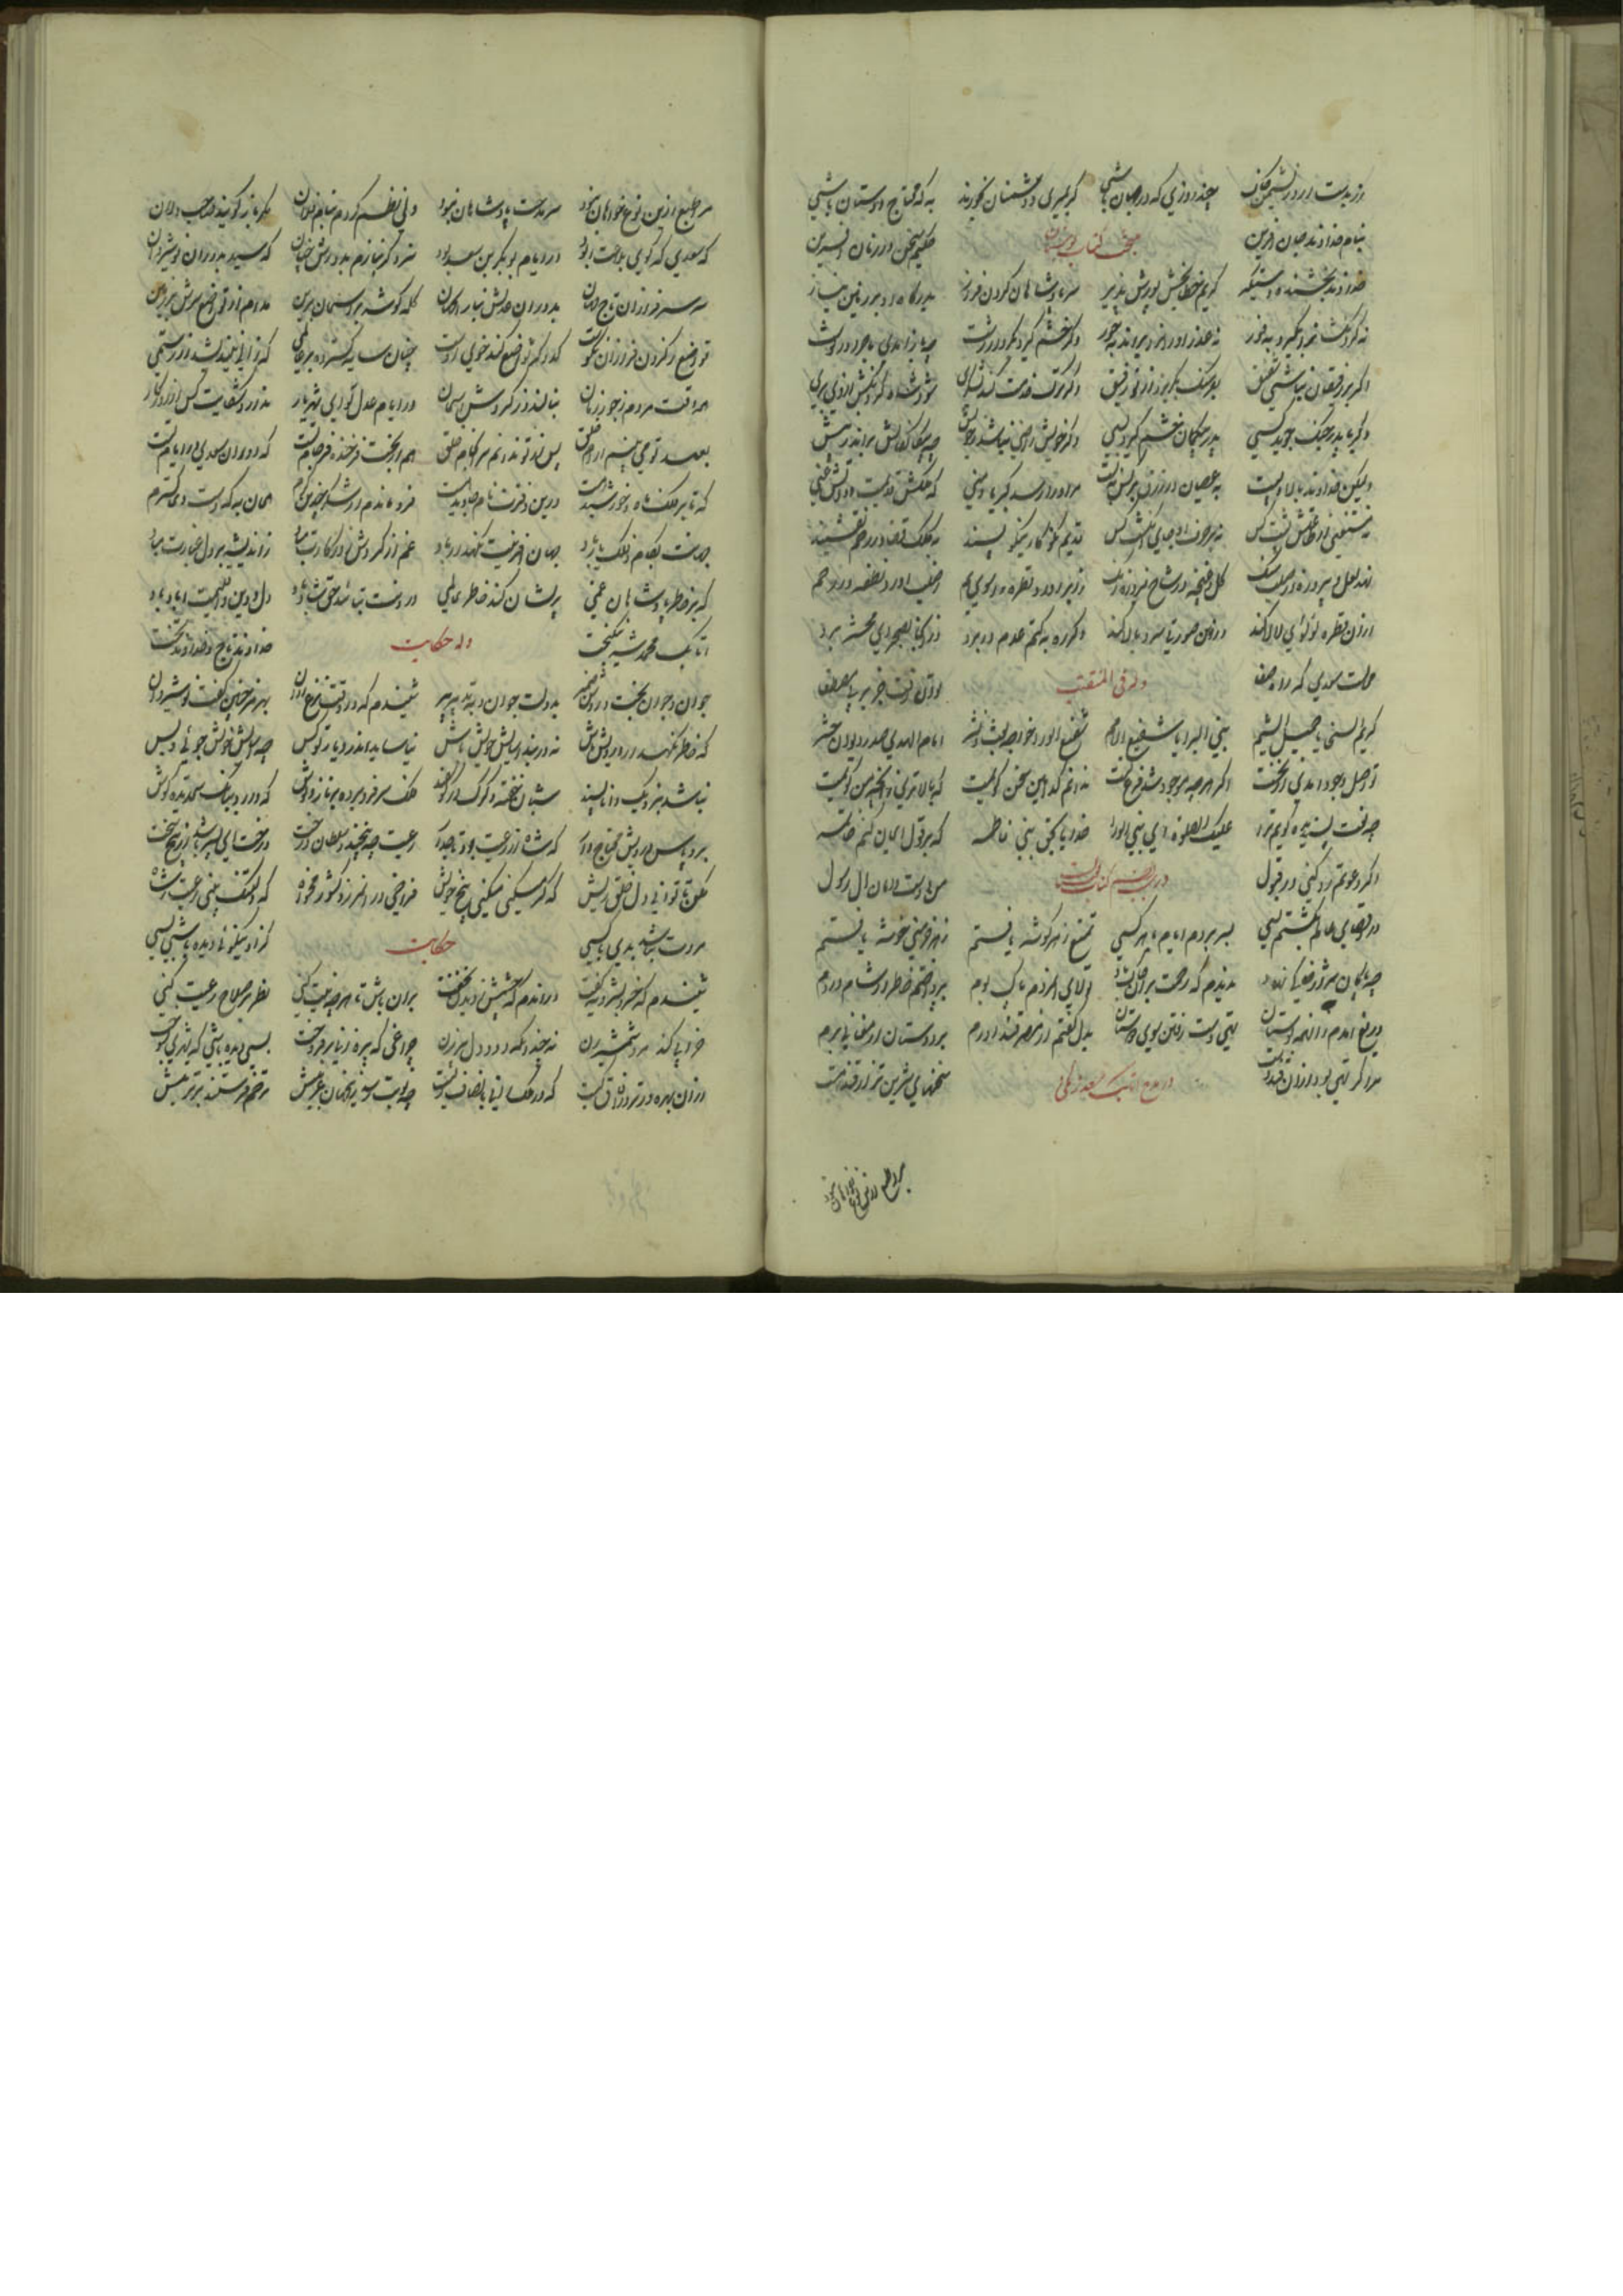 چند روزی که در جهان باشی گر بمیری و دشمنان بخورند به که محتاج دوستان باشی
بنام خداوند جان افرین منتخب کتاب بوستان حکیم سخن در زبان افرین
خداوند بخشنده دستگیر کریم خطابخش پوزش پذیر سر پادشاهان گردن فراز بدرگاه او بر زمین نیاز
نه گردنکشان را بگیرد بفور نه عذر اوران را براند بجور وگر خشم گیرد ز کردار زشت چو باز امدی ماجرا در نوشت
اگر بر رفیقان نباشی شفیق بفرسنگ بگریزد از تو رفیق وگر ترک خدمت کند لشکری شود شاه لشکرکش از وی بری
وگر با پدر جنگ جوید کسی پدر بیگمان خشم گیرد بسی وگر خویش راضی نباشد ز خویش چو بیگانگانش براند ز پیش
ولیکن خداوند بالا و پست به عصیان در رزق بر کس نبست مر او را رسد کبریا و منی که ملکش قدیمست و ذاتش غنی
نه مستغنی از طاعتش پشت کس نه بر حرف او جای انگشت کس قدیم نکوکار نیکو پسند به کلک قضا در رحم نقشبند
نهد لعل و پیروزه در صلب سنگ گل در شاخ پیروزه رنگ ز ابر اورد قطره سوی یم ز صلب اورد نطفه در رحم
ازان قطره لولوی لالا کند وزین صورتی سرو بالا کند دگر ره به کتم عدم در برد وز انجا بصحرای محشر برد
محالست سعدی که راه صفا وله فی المنقبت توان رفت جز بر پی مصطفی
کریم السجایا جمیل الشیم نبی البرایا شفیع الامم شفیع الوری خواجه بعث و نشر امام الهدی صدر دیوان حشر
تو اصل وجود امدی از نخست اگر هرچه موجود شد فرع تست ندانم کدامین سخن گویمت که بالاتری زانچه من گویمت
چه نعت پسندیده گویم ترا علیک الصلوة ای نبی الورا خدایا بحق بنی فاطمه که بر قول ایمان کنم خاتمه
اگر دعوتم رد کنی ور قبول من و دست و دامان ال رسول
در اقصای عالم بگشتم بسی بسر بردم ایام با هر کسی تمتع ز هر گوشه یافتم ز هر خرمنی خوشه یافتم
چو پاکان شیراز خاکی نهاد ندیدم که رحمت بران خاک باد تولای مردان پاک بوم خاطر از شام و روم
دریغ امدم زان همه بوستان تهی دست رفتن سوی دوستان بدل گفتم از مصر قند اورم بر دوستان ارمغانی برم
مرا گر تهی بود ازان قند دست در مدح اتابک سعد زنگی سخنهای شیرین تر از قند هست
مرا طبع ازین نوع خواهان نبود
مرا طبع ازین نوع خواهان نبود سر مدحت پادشاهان نبود ولی نظم کردم بنام فلان مگر باز گویند صاحب دلان
که سعدی که گوی بلاغت ربود در ایام بوبکر بن سعد بود سزد گر بنازم بدورش چنان که سید بدوران نوشیروان
سر سرفرازان تاج مهان بدوران عدلش بناز ای جهان کله گوشه بر اسمان برین مدام از تواضع سرش بر زمین
تواضع ز گردن فرازان نکوست گدا گر تواضع کند خوی اوست چنان سایه گسترده بر عالمی که زالی نیندیشد از رستمی
همه وقت مردم ز جور زمان بنالند و از گردش اسمان در ایام عدل تو ای شهریار ندارد شکایت کس از روزگار
بعهد تو می بینم ارام خلق پس از تو ندانم سرانجام خلق هم از بخت فرخنده فرجام تست که دوران سعدی در ایام تست
که تا بر فلک ماه و خورشید هست درین دفترت نام جاوید هست فرو ماندم از شکر چندین کرم همان به که دست دعا گسترم
جهانت بکام و فلک یار باد جهان افرینت نگهدار باد غم از گردش روزگارت مباد ز اندیشه بر دل غبارت مباد
که بر خاطر پادشاهان غمی پریشان کند خاطر عالمی درونت بتایید حق شاد باد دل و دین و اقلیمت اباد باد
اتابک محمد شه نیکبخت وله حکایت خداوند تاج و خداوند تخت
جوان و جوان بخت و روشن ضمیر بدولت جوان و بتدبیر پیر شنیدم که در وقت نزع روان بهرمز چنین گفت نوشیروان
که خاطر نگهدار درویش باش نه در بند اسایش خویش باش نیاساید اندر دیار تو کس چو اسایش خویش جویی و بس
نیاید بنزدیک دانا پسند شبان خفته و گرگ در گوسفند
برو پاس درویش محتاج دار که شاه از رعیت بود تاجدار رعیت چو بیخند و سلطان درخت درخت ای پسر باشد از بیخ سخت
مکن تا توانی دل خلق ریش که گر میکنی میکنی بیخ خویش فراخی در ان مرز و کشور مخواه که دلتنگ بینی رعیت ز شاه
مروت نباشد بدی با کسی حکایت کزو نیکوئی دیده باشی بسی
شنیدم که خسرو بشیرویه گفت دراندم که چشمش ز دیدن بخفت بران باش تا هرچه نیت کنی نظر بر صلاح رعیت کنی
خرابی کند مرد شمشیر زن نه چندانکه دود دل پیرزن چراغی که بیوه زنی برفروخت بسی دیده باشی که شهری بسوخت
ازان بهره ورتر در افاق کیست که در ملک رانی بانصاف زیست چو نوبت رسد زین جهان غربتش ترحم فرستند بر تربتش